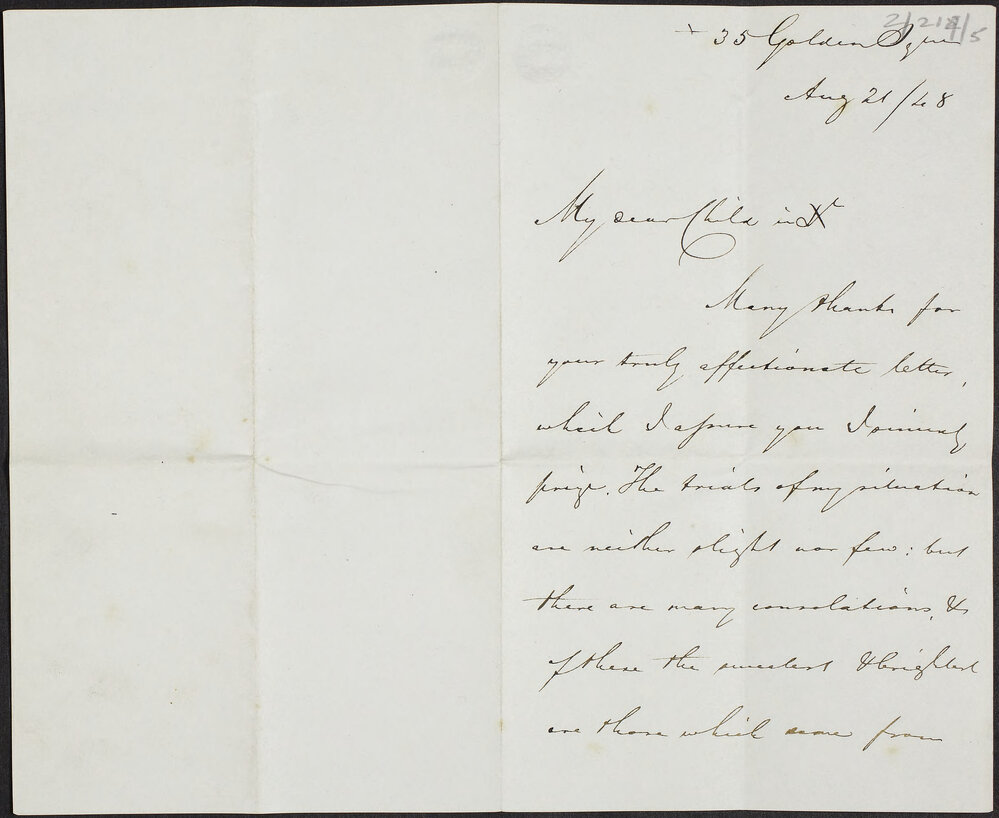 + 35 Golden Sqre
2/2124/5
Aug 21/48
My dear Child in Xt
Many thanks for
your truly affectionate letter,
which I assure you I sincerely
prize. The trials of my situation
are neither slight nor few: but
there are many consolations, &
of these the sweetest & brightest
are those which come from